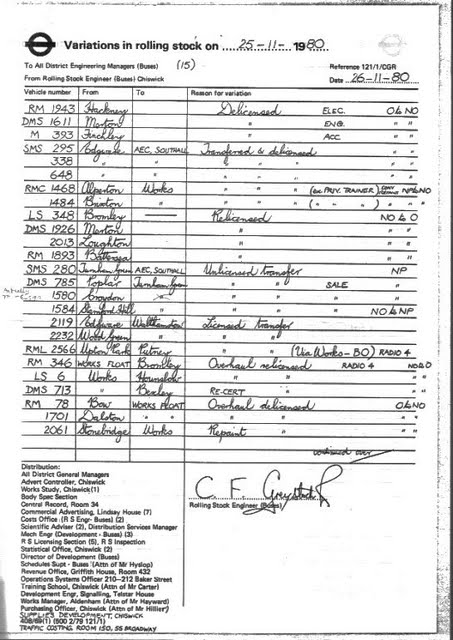 Variations in rolling stock on 25-11-1980
To All District Engineering Managers (Buses) (15) Reference 121/1/CGR
From Rolling Stock Engineer (Buses) Chiswick Date 26-11-80
Vehicle number From To Reason for variation
RM 1943 Hackney Delicensed ELEC. O to NO
DMS 1611 Merton " ENG. " "
M 393 Finchley " ACC " "
SMS 295 Edgware AEC, SOUTHALL Transferred & delicensed " "
338 " " " & " " "
648 " " " " " " "
RMC 1468 Alperton Works " " " (ex PRIV. TRAINER) NP to NO
1484 Brixton " " " " ( " " " ) " "
LS 348 Bromley Relicensed NO to O
DMS 1926 Merton " " "
2013 Loughton " " "
RM 1893 Battersea " " "
SMS 280 Turnham Green AEC, SOUTHALL Unlicensed transfer NP
DMS 785 Poplar Turnham Green " " SALE "
1580 Croydon " " " " "
1584 Stamford Hill " " " " NO to NP
2119 Edgware Walthamstow Licensed transfer
2232 Wood Green " " "
RML 2566 Upton Park Putney " " (Via Works-BO) RADIO 4
RM 346 WORKS FLOAT Bromley Overhaul relicensed RADIO 4 NO to O
LS 6 Works Hounslow " " " "
DMS 713 " Bexley RE-CERT " " "
RM 78 Bow WORKS FLOAT Overhaul delicensed O to NO
1701 Dalston " " " " " "
2061 Stonebridge Works Repaint " " "
continued over
Distribution:
All District General Managers
Advert Controller, Chiswick
Works Study, Chiswick(1)
Body Spec Section
Central Record, Room 34
Commercial Advertising, Lindsay House (7)
Costs Office (R S Engr- Buses) (2)
Scientific Adviser (2), Distribution Services Manager
Mech Engr (Development - Buses) (3)
R S Licensing Section (5), R S Inspection
Statistical Office, Chiswick (2)
Director of Development (Buses)
Schedules Supt - Buses (Attn of Mr Hyslop)
Revenue Office, Griffith House, Room 432
Operations Systems Officer 210-212 Baker Street
Training School, Chiswick (Attn of Mr Carter)
Development Engr, Signalling, Telstar House
Works Manager, Aldenham (Attn of Mr Hayward)
Purchasing Officer, Chiswick (Attn of Mr Hillier)
SUPPLIES DEVELOPMENT, CHISWICK
408/69(1) (500 2/79 121/1)
TRAFFIC COSTING ROOM 150, 55 BROADWAY
C. F. Greystock
Rolling Stock Engineer (Buses)